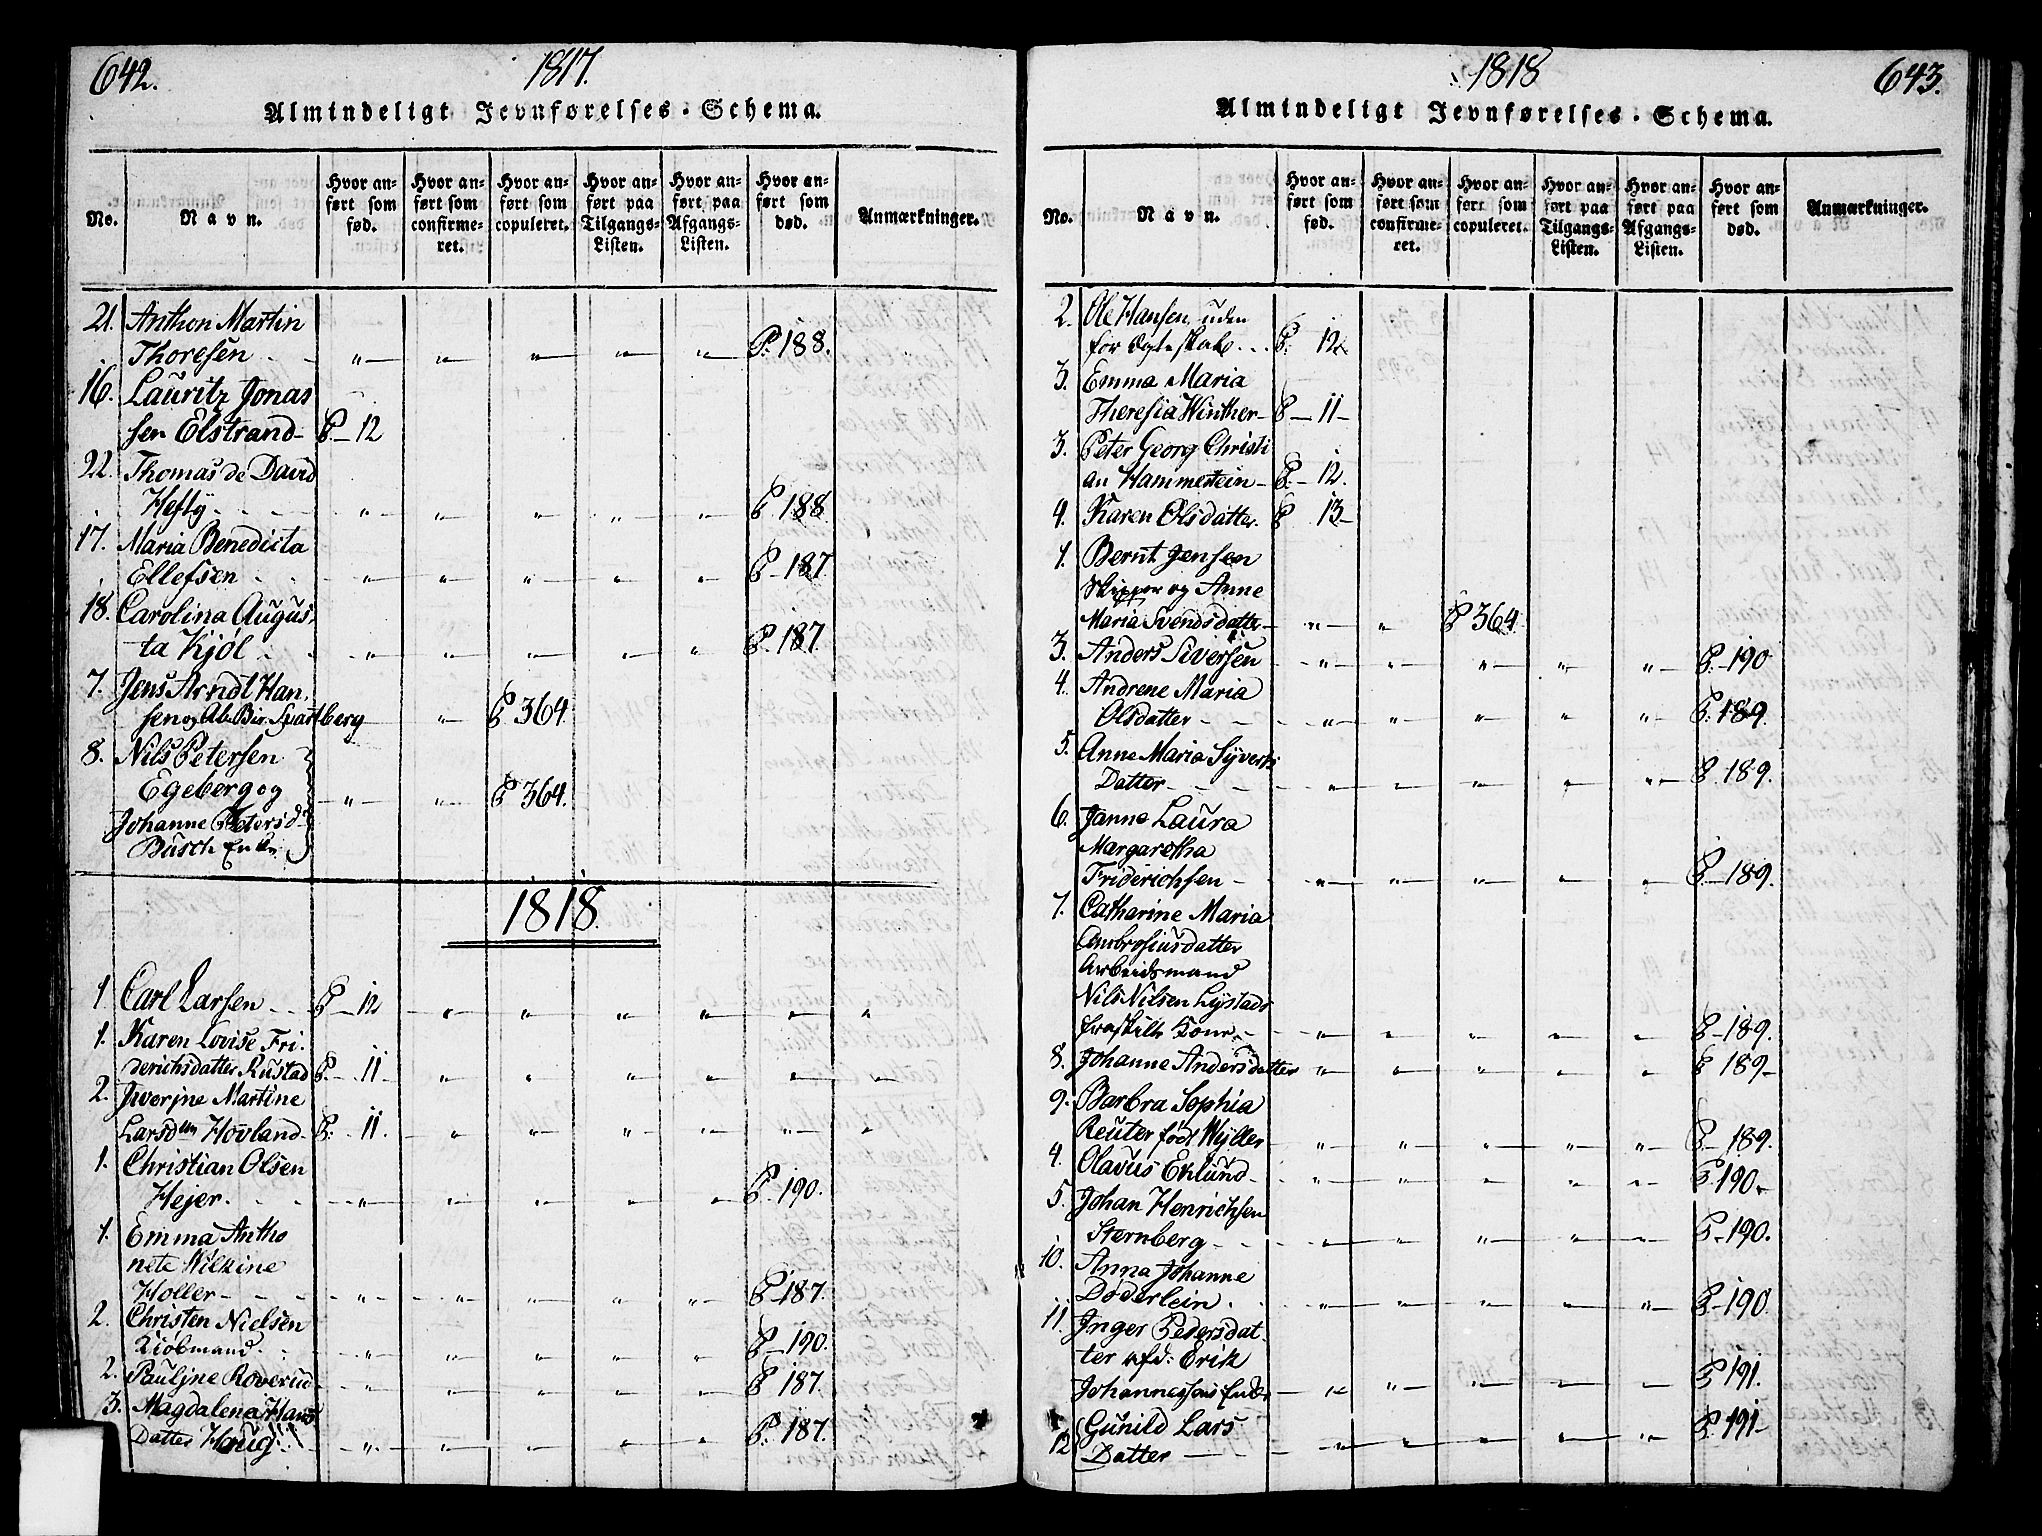 642.
1817.
Almindeligt Jevnførelses-Schema.
No.
Navn.
Hvor anført som fød.
Hvor anført som confirmeret.
Hvor anført som copuleret.
Hvor anført paa Tilgangs-Listen.
Hvor anført paa Afgangs-Listen.
Hvor anført som død.
Anmærkninger.
21. Anthon Martin
Thoresen P. 188.
16. Lauritz Jonas
sen Elstrand P. 12
22. Thomas de David
Hefty P. 188
17. Maria Benedicta
Ellefsen P. 187
18. Carolina Augus
ta Kjøl P. 187.
7. Jens Arndt Han
sen og P. 364.
8. Nils Petersen
Egeberg og P. 364.
Johanne Petersd
Busch Enke
1818.
1 Carl Larsen P. 12
1. Karen Lovise Fri
derichsdatter Rustad P. 11
2. Iverine Martine
Larsdtr Hovland P. 11.
1. Christian Olsen
Hejer P. 190.
1. Emma Antho
nete Wilkine
Holler P. 187
2. Christen Nielsen
Kiøbmand P. 190.
2. Pauljne Roverud P. 187.
3. Magdalena Hans
Datter Haug P. 187.
1818
643.
Almindeligt Jevnførelses-Schema.
No.
Navn.
Hvor anført som fød.
Hvor anført som confirmeret.
Hvor anført som copuleret.
Hvor anført paa Tilgangs-Listen.
Hvor anført paa Afgangs-Listen.
Hvor anført som død.
Anmærkninger.
2. Ole Hansen uden
for Ægteskab P. 12
3. Emma Maria
Theresia Winther P. 11
3. Peter Georg Christi
an Hammerstein P. 12.
4. Karen Olsdatter P. 13
1. Bernt Jensen
Skipper og Anne
Maria Svendsdatter P. 364.
3. Anders Siversen P. 190
4. Andrene Maria
Olsdatter P. 189.
5. Anne Maria Syverts
Datter P. 189.
6. Janna Laura
Margaretha
Friderichsen P. 189.
7. Catharine Maria
Ambrosiusdatter
Arbeidsmand
Nils Nilsen Lystads
fraskilte Kone P. 189.
8. Johanne Andersdatter P. 189
9. Barbra Sophia
Reuter fød Wyller P. 189.
4. Olavus Eklund P. 190
5. Johan Henrichsen
Sternberg P. 190.
10. Anna Johanne
Døderlein P. 190
11. Inger Pedersdat
ter afd: Erik
Johannessens Enke P. 191.
12 Gunild Lars
Datter P. 191